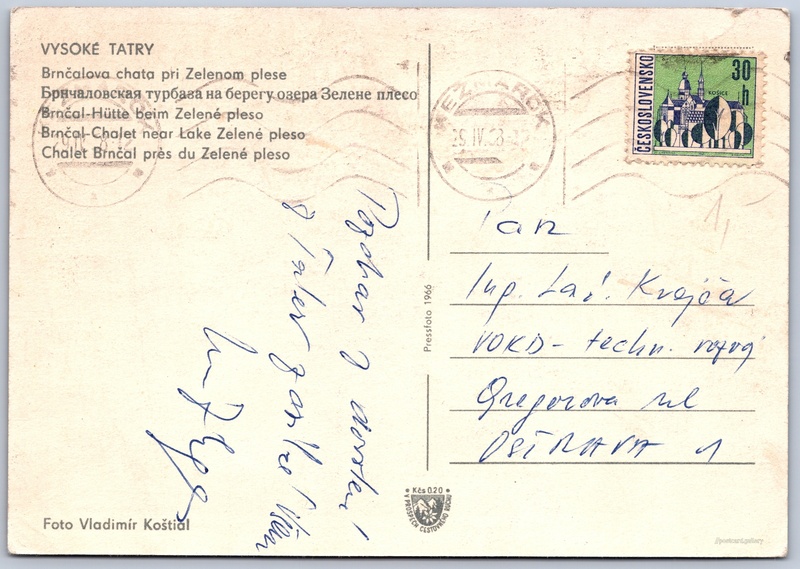 VYSOKÉ TATRY
Brnčalova chata pri Zelenom plese
Брнчаловская турбаза на берегу озера Зелене плесо
Brnčal-Hütte beim Zelené pleso
Brnčal-Chalet near Lake Zelené pleso
Chalet Brnčal près du Zelené pleso
Foto Vladimír Koštial
Pozdrav z
z Tater
Pressfoto 1966
Kčs 0.20
V PROSPĚCH CESTOVNÉHO RUCHU
KEŽMAROK
ČESKOSLOVENSKO
30 h
KOŠICE
Pan
Ing. Lad. Krajča
VOKD - techn. rozvoj
Gregorova ul
OSTRAVA 1